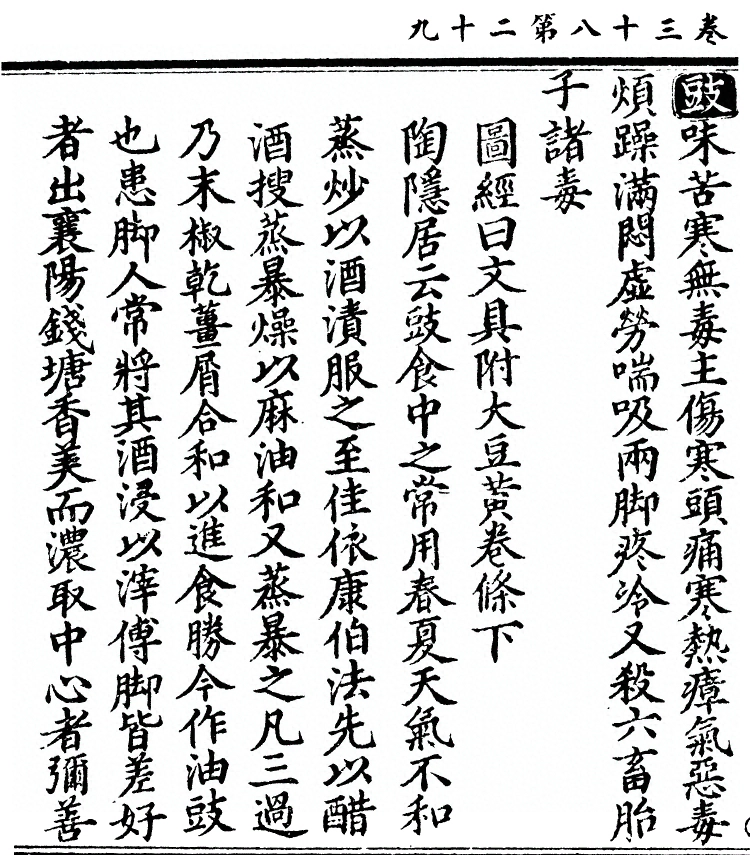 卷三十八第二十九
豉味苦寒無毒主傷寒頭痛寒熱瘴氣惡毒
煩躁滿悶虛勞喘吸兩脚疼冷又殺六畜胎
子諸毒
圖經曰文具附大豆黃卷條下
陶隱居云豉食中之常用春夏天氣不和
蒸炒以酒漬服之至佳依康伯法先以醋
酒搜蒸暴燥以麻油和又蒸暴之凡三過
乃末椒乾薑屑合和以進食勝今作油豉
也患脚人常將其酒浸以滓傅脚皆差好
者出襄陽錢塘香美而濃取中心者彌善